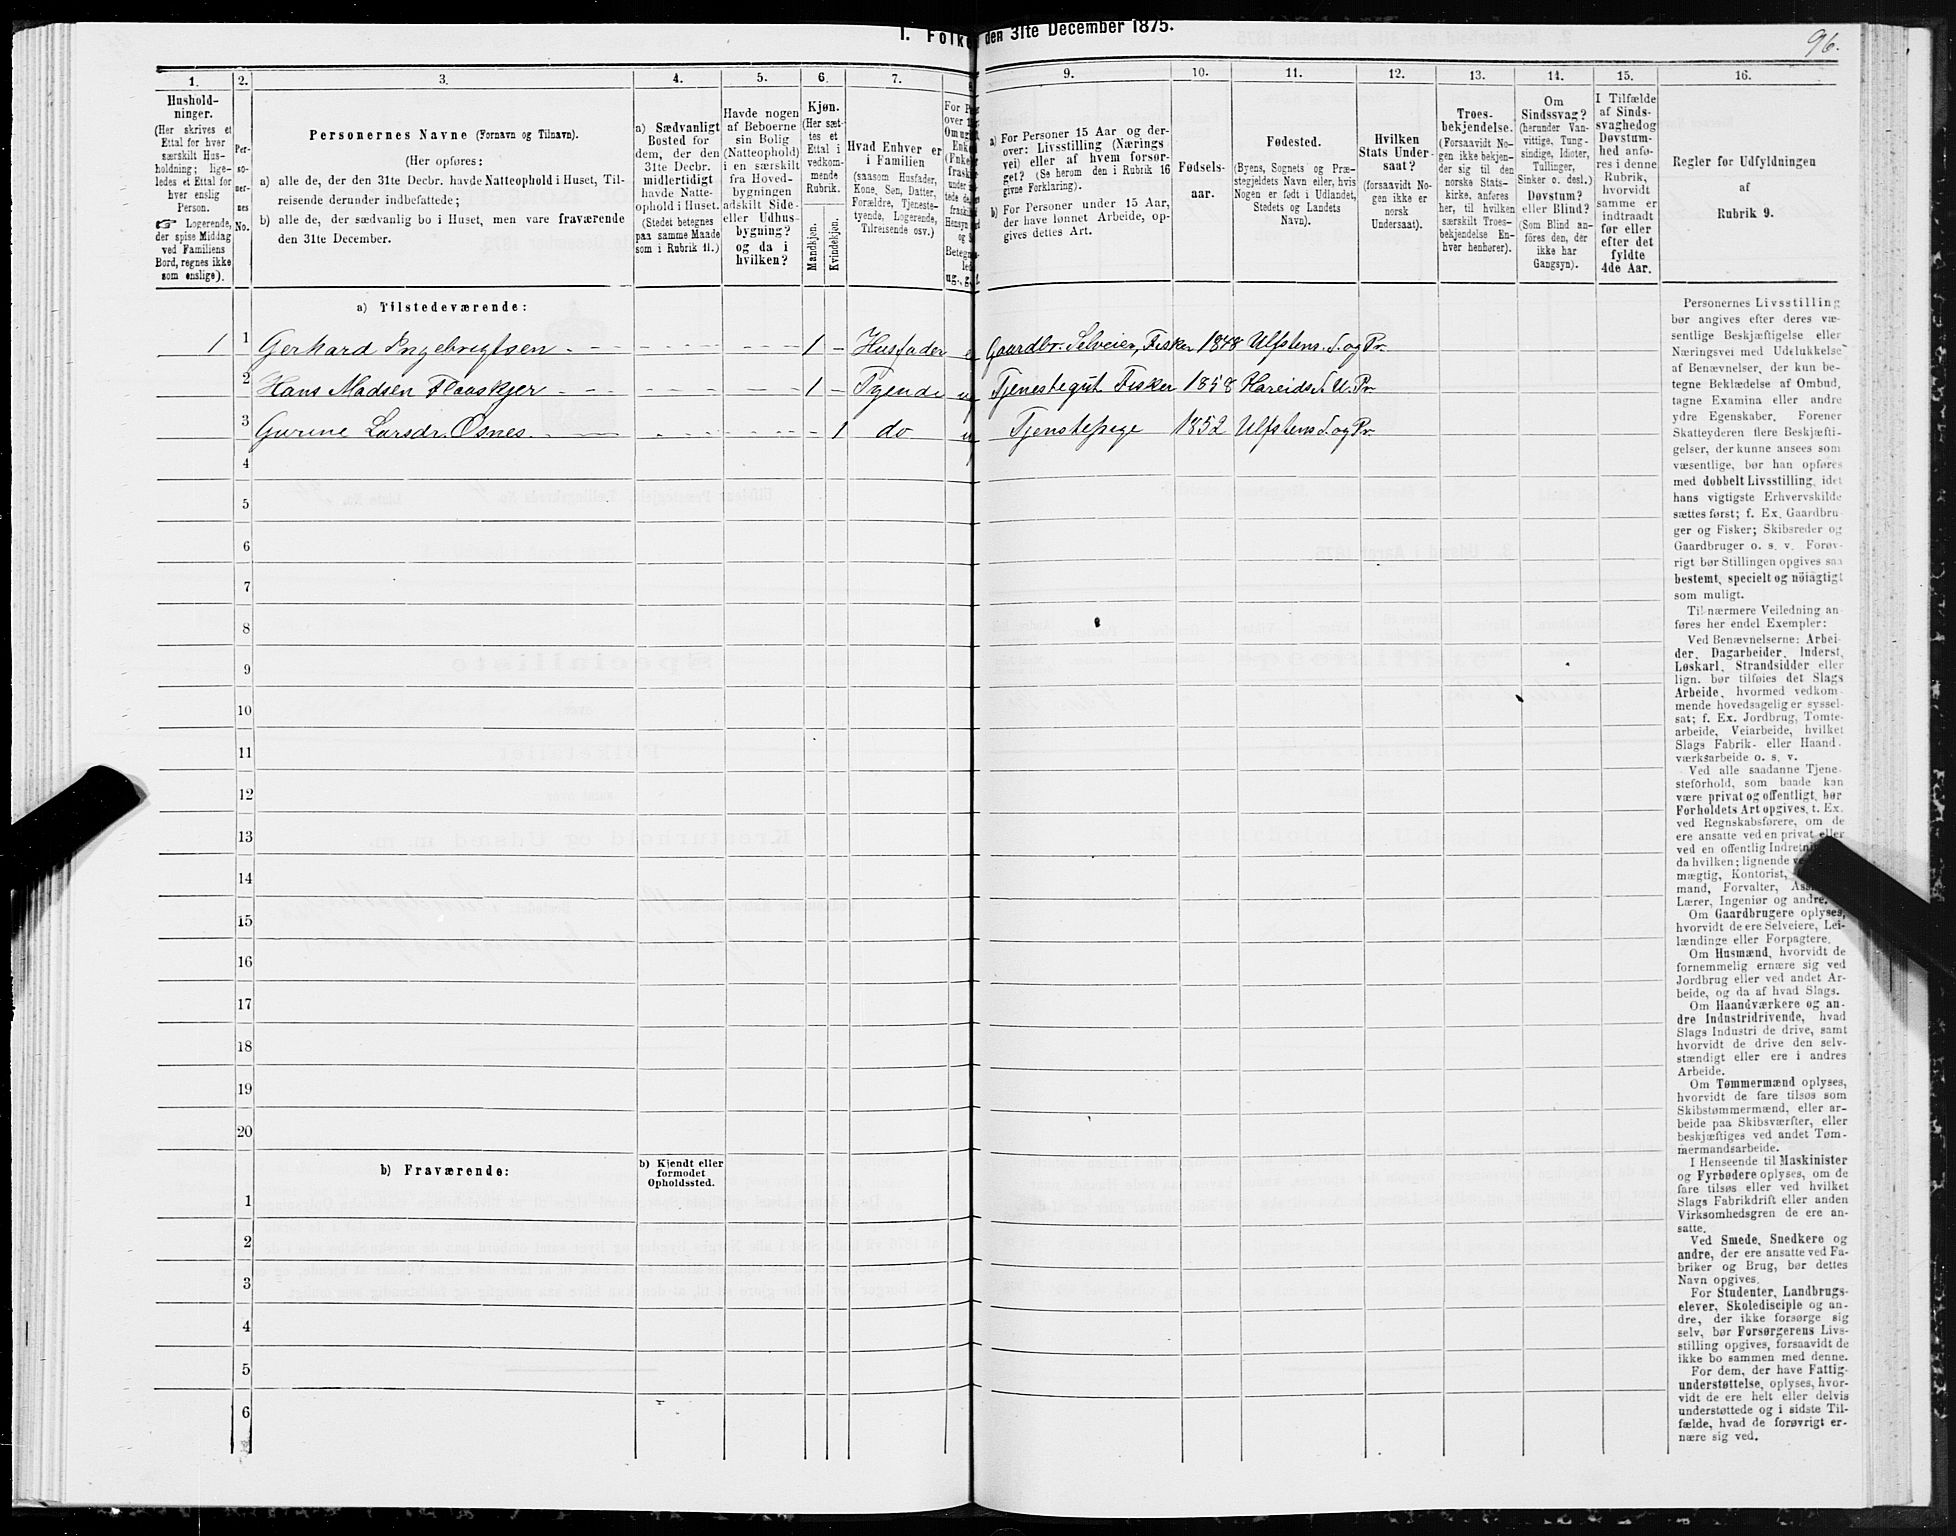 1. Folke den 31te December 1875.
96.
1.
2.
3.
4.
5.
6.
7.
9.
10.
11.
12.
13.
14.
15.
16.
Hushold-
ninger.
(Her skrives et
Ettal for hver
særskilt Hus-
holdning; lige-
ledes et Ettal for
hver enslig
Person.
☞ Logerende,
der spise Middag
ved Familiens
Bord, regnes ikke
som enslige).
Per-
so-
ner-
nes
No.
Personernes Navne (Fornavn og Tilnavn).
(Her opføres:
a) alle de, der den 31te Decbr. havde Natteophold i Huset, Til-
reisende derunder indbefattede;
b) alle de, der sædvanlig bo i Huset, men vare fraværende
den 31te December.
a) Sædvanligt
Bosted for
dem, der den
31te Decbr.
midlertidigt
havde Natte-
ophold i Huset.
(Stedet betegnes
paa samme Maade
som i Rubrik 11.)
Havde nogen
af Beboerne
sin Bolig
(Natteophold)
i en særskilt
fra Hoved-
bygningen
adskilt Side-
eller Udhus-
bygning?
og da i
hvilken?
Kjøn.
(Her sæt-
tes et
Ettal i
vedkom-
mende
Rubrik.
Mandkjøn.
Kvindekjøn.
Hvad Enhver er
i Familien
(saasom Husfader,
Kone, Søn, Datter,
Forældre, Tjeneste-
tyende, Logerende,
Tilreisende osv.)
For P
over 1
Om ug
Enke
Betegn
led
ug., g.
a) For Personer 15 Aar og der-
over: Livsstilling (Nærings-
vei) eller af hvem forsør-
get? (Se herom den i Rubrik 16
givne Forklaring).
b) For Personer under 15 Aar,
der have lønnet Arbeide, op-
gives dettes Art.
Fødsels-
aar.
Fødested.
(Byens, Sognets og Præ-
stegjeldets Navn eller, hvis
Nogen er født i Udlandet,
Stedets og Landets
Navn).
Hvilken
Stats Under-
saat?
(forsaavidt No-
gen ikke er
norsk
Undersaat).
Troes-
bekjendelse.
(Forsaavidt No-
gen ikke bekjen-
der sig til den
norske Stats-
kirke, anføres
her, til hvilken
særskilt Troes-
bekjendelse En-
hver henhører).
Om
Sindssvag?
(herunder Van-
vittige, Tung-
sindige, Idioter,
Tullinger,
Sinker o. desl.)
Døvstum?
eller Blind?
(Som Blind an-
føres den, der
ikke har
Gangsyn).
I Tilfælde
af Sinds-
svaghed og
Døvstum-
hed anfø-
res i denne
Rubrik,
hvorvidt
samme er
indtraadt
før eller
efter det
fyldte
4de Aar.
Regler for Udfyldningen
af
Rubrik 9.
a) Tilstedeværende:
1 1 Gerhard Ingebrigtsen 1 - Husfader Gaardbr. Selveier, Fisker 1848 Ulfstens S. og Pr.
2 Hans Madsen Flaaskjer 1 - Tyende Tjenestegut Fisker 1858 Hareids S. U. Pr.
3 Gurine Larsdr. Osnes 1 do Tjenstepige 1852 Ulfstens S. og Pr.
4
5
6
7
8
9
10
11
12
13
14
15
16
17
18
19
20
b) Fraværende:
b) Kjendt eller
formodet
Opholdssted.
1
2
3
4
5
6
Personernes Livsstilling
bør angives efter deres væ-
sentlige Beskjæftigelse eller
Næringsvei med Udelukkelse
af Benævnelser, der kun be-
tegne Beklædelse af Ombud,
tagne Examina eller andre
ydre Egenskaber. Forener
Skatteyderen flere Beskjæfti-
gelser, der kunne ansees som
væsentlige, bør han opføres
med dobbelt Livsstilling, idet
hans vigtigste Erhvervskilde
sættes først; f. Ex. Gaardbru-
ger og Fisker; Skibsreder og
Gaardbruger o. s. v. Forøv-
rigt bør Stillingen opgives saa
bestemt, specielt og nöiagtigt
som muligt.
Til nærmere Veiledning an-
føres her endel Exempler:
Ved Benævnelserne: Arbei-
der, Dagarbeider, Inderst,
Løskarl, Strandsidder eller
lign. bør tilføies det Slags
Arbeide, hvormed vedkom-
mende hovedsagelig er syssel-
sat; f. Ex. Jordbrug, Tomte-
arbeide, Veiarbeide, hvilket
Slags Fabrik- eller Haand-
værksarbeide o. s. v.
Ved alle saadanne Tjene-
steforhold, som baade kan
være privat og offentligt, bør
Forholdets Art opgives, t. Ex.
ved Regnskabsførere, om de
ere ansatte ved en privat eller
ved en offentlig Indretni
da hvilken; lignende ve
mægtig, Kontorist,
mand, Forvalter, Ass
Lærer, Ingeniør og andre.
Om Gaardbrugere oplyses,
hvorvidt de ere Selveiere, Lei-
lændinge eller Forpagtere.
Om Husmænd, hvorvidt de
fornemmelig ernære sig ved
Jordbrug eller ved andet Ar-
beide, og da af hvad Slags.
Om Haandværkere og an-
dre Industridrivende, hvad
Slags Industri de drive, samt
hvorvidt de drive den selv-
stændigt eller ere i andres
Arbeide.
Om Tømmermænd oplyses,
hvorvidt de fare tilsøs som
Skibstømmermænd, eller ar-
beide paa Skibsværfter, eller
beskjæftiges ved andet Tøm-
mermandsarbeide.
I Henseende til Maskinister
og Fyrbødere oplyses, om de
fare tilsøs eller ved hvilket
Slags Fabrikdrift eller anden
Virksomhedsgren de ere an-
satte.
Ved Smede, Snedkere og
andre, der ere ansatte ved Fa-
briker og Brug, bør dettes
Navn opgives.
For Studenter, Landbrugs-
elever, Skoledisciple og an-
dre, der ikke forsørge sig
selv, bør Forsørgerens Livs-
stilling opgives, forsaavidt de
ikke bo sammen med denne.
For dem, der have Fattig-
understøttelse, oplyses, hvor-
vidt de ere helt eller delvis
understøttede og i sidste Til-
fælde, hvad de forøvrigt er-
nære sig ved.